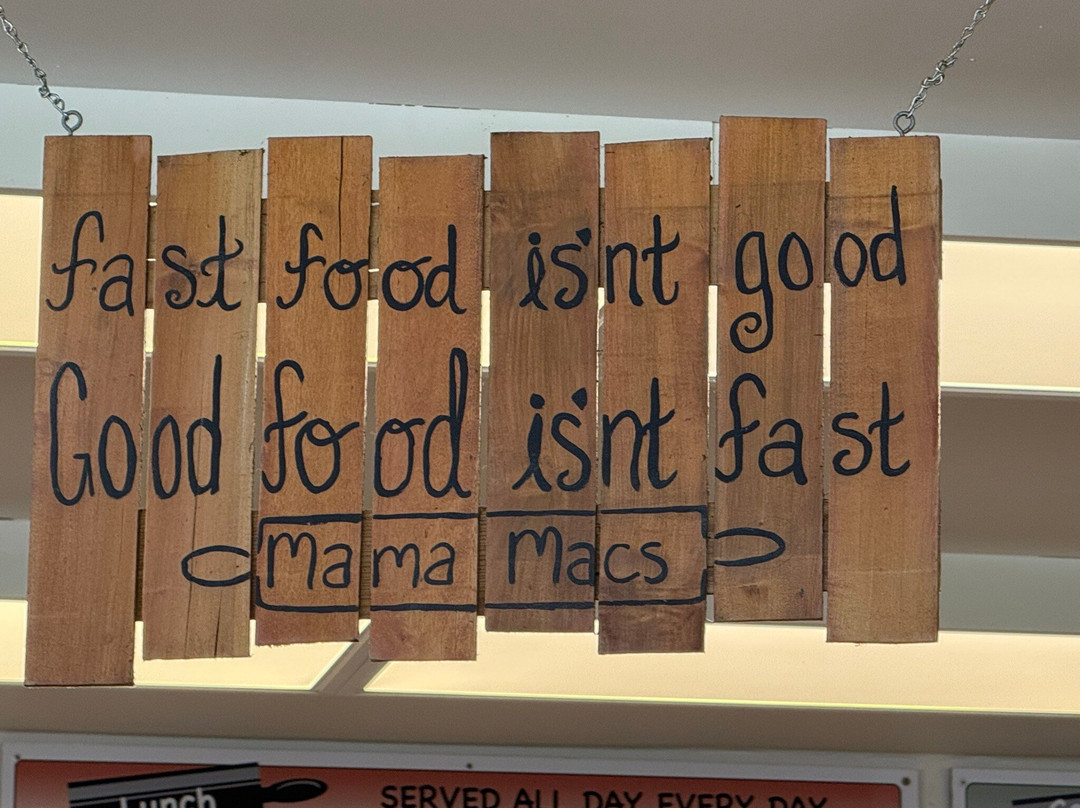 fast food is'nt good
Good food is'nt fast
Mama Macs
Lunch
SERVED ALL DAY EVERY DAY